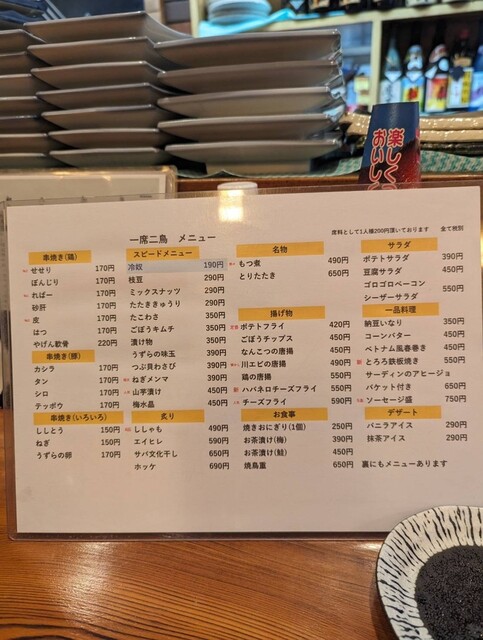 楽しく
おいし
一席二鳥 メニュー
席料として1人様200円頂いております 全て税別
串焼き(鶏)
せせり 170円
ぼんじり 170円
ればー 170円
砂肝 170円
皮 170円
はつ 170円
やげん軟骨 220円
串焼き(豚)
カシラ 170円
タン 170円
シロ 170円
テッポウ 170円
串焼き(いろいろ)
ししとう 150円
ねぎ 150円
うずらの卵 170円
スピードメニュー
冷奴 190円
枝豆 290円
ミックスナッツ 290円
たたききゅうり 290円
たこわさ 350円
ごぼうキムチ 350円
漬け物 350円
うずらの味玉 390円
つぶ貝わさび 390円
ねぎメンマ 390円
山芋漬け 450円
梅水晶 450円
炙り
ししゃも 490円
エイヒレ 590円
サバ文化干し 650円
ホッケ 690円
名物
もつ煮 490円
とりたたき 650円
揚げ物
ポテトフライ 420円
ごぼうチップス 450円
なんこつの唐揚 450円
川エビの唐揚 490円
鶏の唐揚 550円
ハバネロチーズフライ 550円
チーズフライ 590円
お食事
焼きおにぎり(1個) 250円
お茶漬け(梅) 390円
お茶漬け(鮭) 450円
焼鳥重 650円
サラダ
ポテトサラダ 390円
豆腐サラダ 450円
ゴロゴロベーコン
シーザーサラダ 550円
一品料理
納豆いなり 350円
コーンバター 450円
ベトナム風春巻き 450円
とろろ鉄板焼き 550円
サーディンのアヒージョ
バケット付き 650円
ソーセージ盛 750円
デザート
バニラアイス 290円
抹茶アイス 290円
裏にもメニューあります